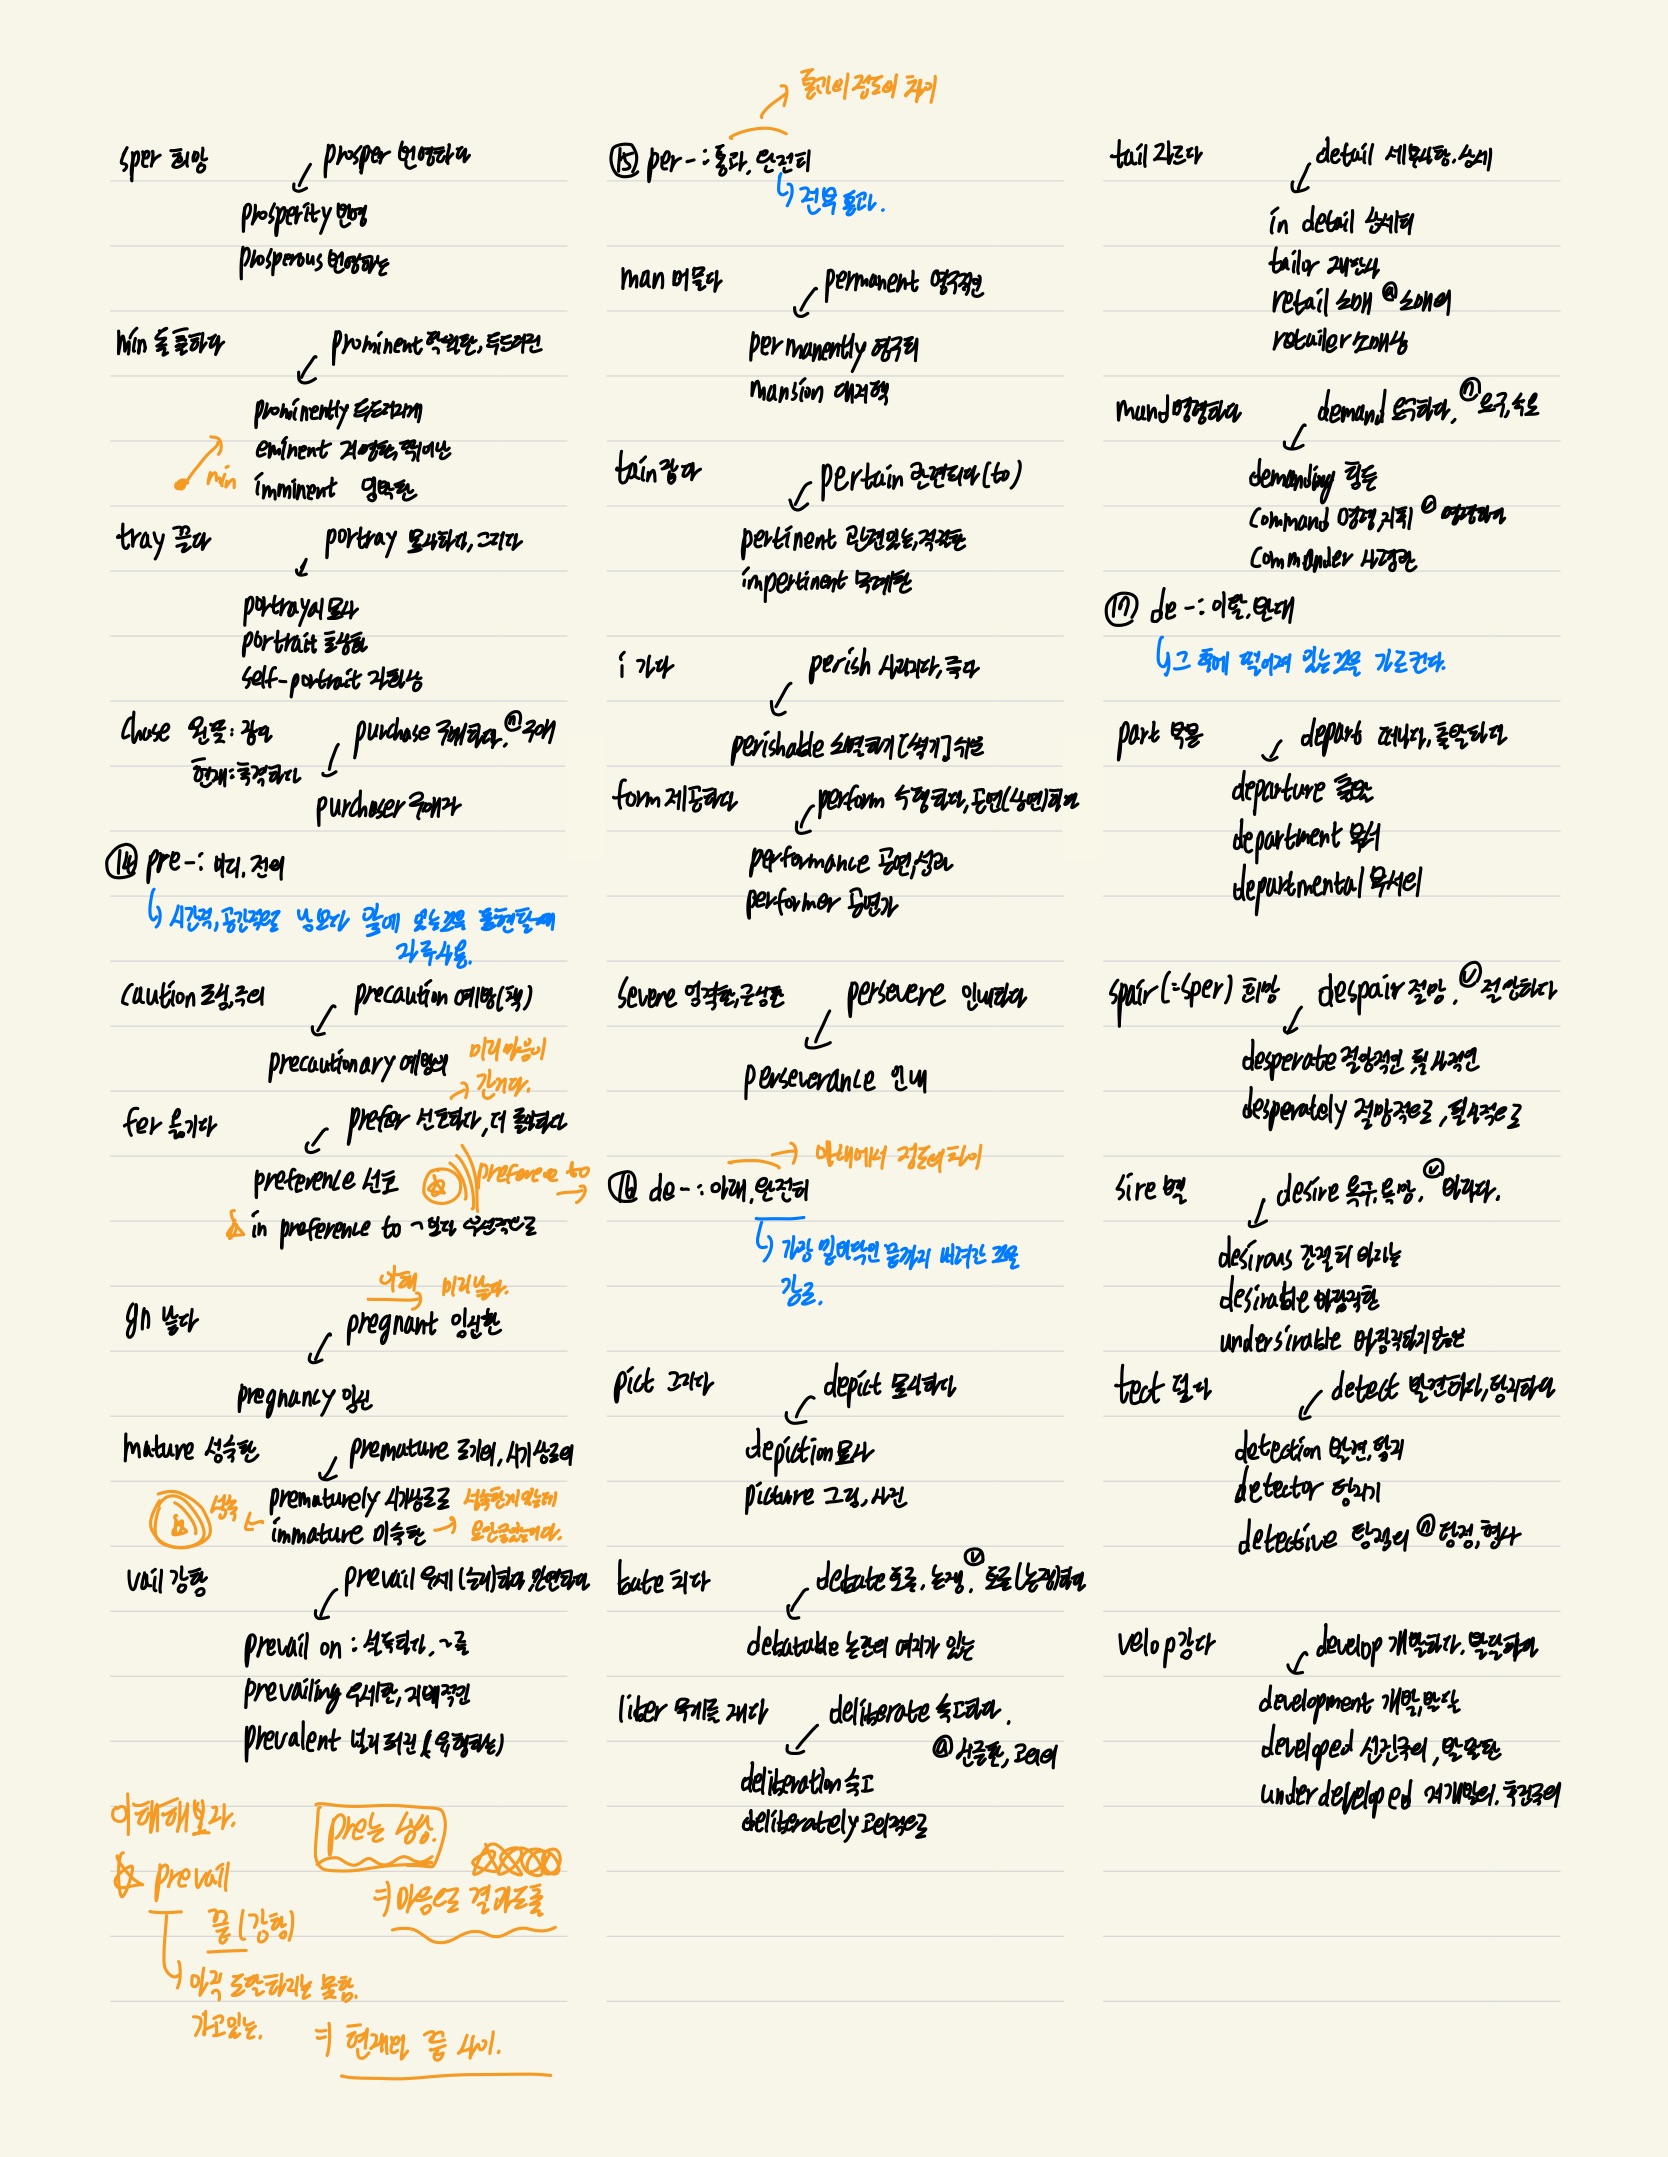 sper 희망
prosper 번영하다
prosperity 번영
prosperous 번영하는
min 돌출하다
prominent 탁월한, 두드러진
prominently 두드러지게
eminent 저명한, 뛰어난
min
imminent 임박한
tray 끌다
portray 묘사하다, 그리다
portrayal 묘사
portrait 초상화
self-portrait 자화상
chase 원뜻: 잡다
현재: 추격하다
purchase 구매하다. ⓝ 구매
purchaser 구매자
⑭ pre-: 미리, 전의
시간적, 공간적으로 남보다 앞에 있는 것을 표현할 때
자주 사용.
caution 조심, 주의
precaution 예방(책)
precautionary 예방의
미리 마음이
간다.
fer 옮기다
prefer 선호하다, 더 좋아하다
preference 선호
preference to
in preference to ~보다 우선적으로
미리 낳다.
gn 낳다
pregnant 임신한
pregnancy 임신
mature 성숙한
premature 조기의, 시기상조의
성숙
prematurely 시기상조로
immature 미숙한
vail 강함
prevail 우세(승리)하다, 만연하다
prevail on : 설득하다, ~를
prevailing 우세한, 지배적인
prevalent 널리 퍼진 (유행하는)
이해해보라.
pre는 상상.
prevail
⇒ 마음으로 결과도출
끝(강함)
아직 도달하지는 못함.
가고있는.
⇒ 현재와 끝 사이.
통과의 정도의 차이
⑮ per-: 통과, 완전히
전부 통과.
man 머물다
permanent 영구적인
permanently 영구히
mansion 대저택
tain 잡다
pertain 관련되다(to)
pertinent 관련있는, 적절한
impertinent 무례한
i 가다
perish 사라지다, 죽다
perishable 소멸하기[썩기] 쉬운
form 제공하다
perform 수행하다, 공연(상연)하다
performance 공연, 성과
performer 공연가
severe 엄격한, 근성한
persevere 인내하다
perseverance 인내
아래에서 정도의 차이
⑯ de-: 아래, 완전히
가장 밑바닥인 끝까지 내려간 것을
강조.
pict 그리다
depict 묘사하다
depiction 묘사
picture 그림, 사진
bate 치다
debate 토론, 논쟁. ⓥ 토론(논쟁)하다
debatable 논란의 여지가 있는
liber 무게를 재다
deliberate 숙고하다.
ⓐ 신중한, 고의의
deliberation 숙고
deliberately 고의적으로
tail 자르다
detail 세부사항, 상세
in detail 상세히
tailor 재단사
retail 소매 ⓐ 소매의
retailer 소매상
mand 명령하다
demand 요구하다. ⓝ 요구, 수요
demanding 힘든
command 명령, 지휘 ⓥ 명령하다
commander 사령관
⑰ de-: 이탈, 반대
그 후에 떨어져 있는 것을 가르킨다.
part 부분
depart 떠나다, 출발하다
departure 출발
department 부서
departmental 부서의
spair (=sper) 희망
despair 절망. ⓥ 절망하다
desperate 절망적인 필사적인
desperately 절망적으로, 필사적으로
sire 별
desire 욕구, 욕망. ⓥ 바라다.
desirous 간절히 바라는
desirable 바람직한
undersirable 바람직하지 않은
tect 덮다
detect 발견하다, 탐지하다
detection 발견, 탐지
detector 탐지기
detective 탐정의 ⓝ 탐정, 형사
velop 감다
develop 개발하다. 발달하다
development 개발, 발달
developed 선진국의, 발달한
underdeveloped 저개발의. 후진국의